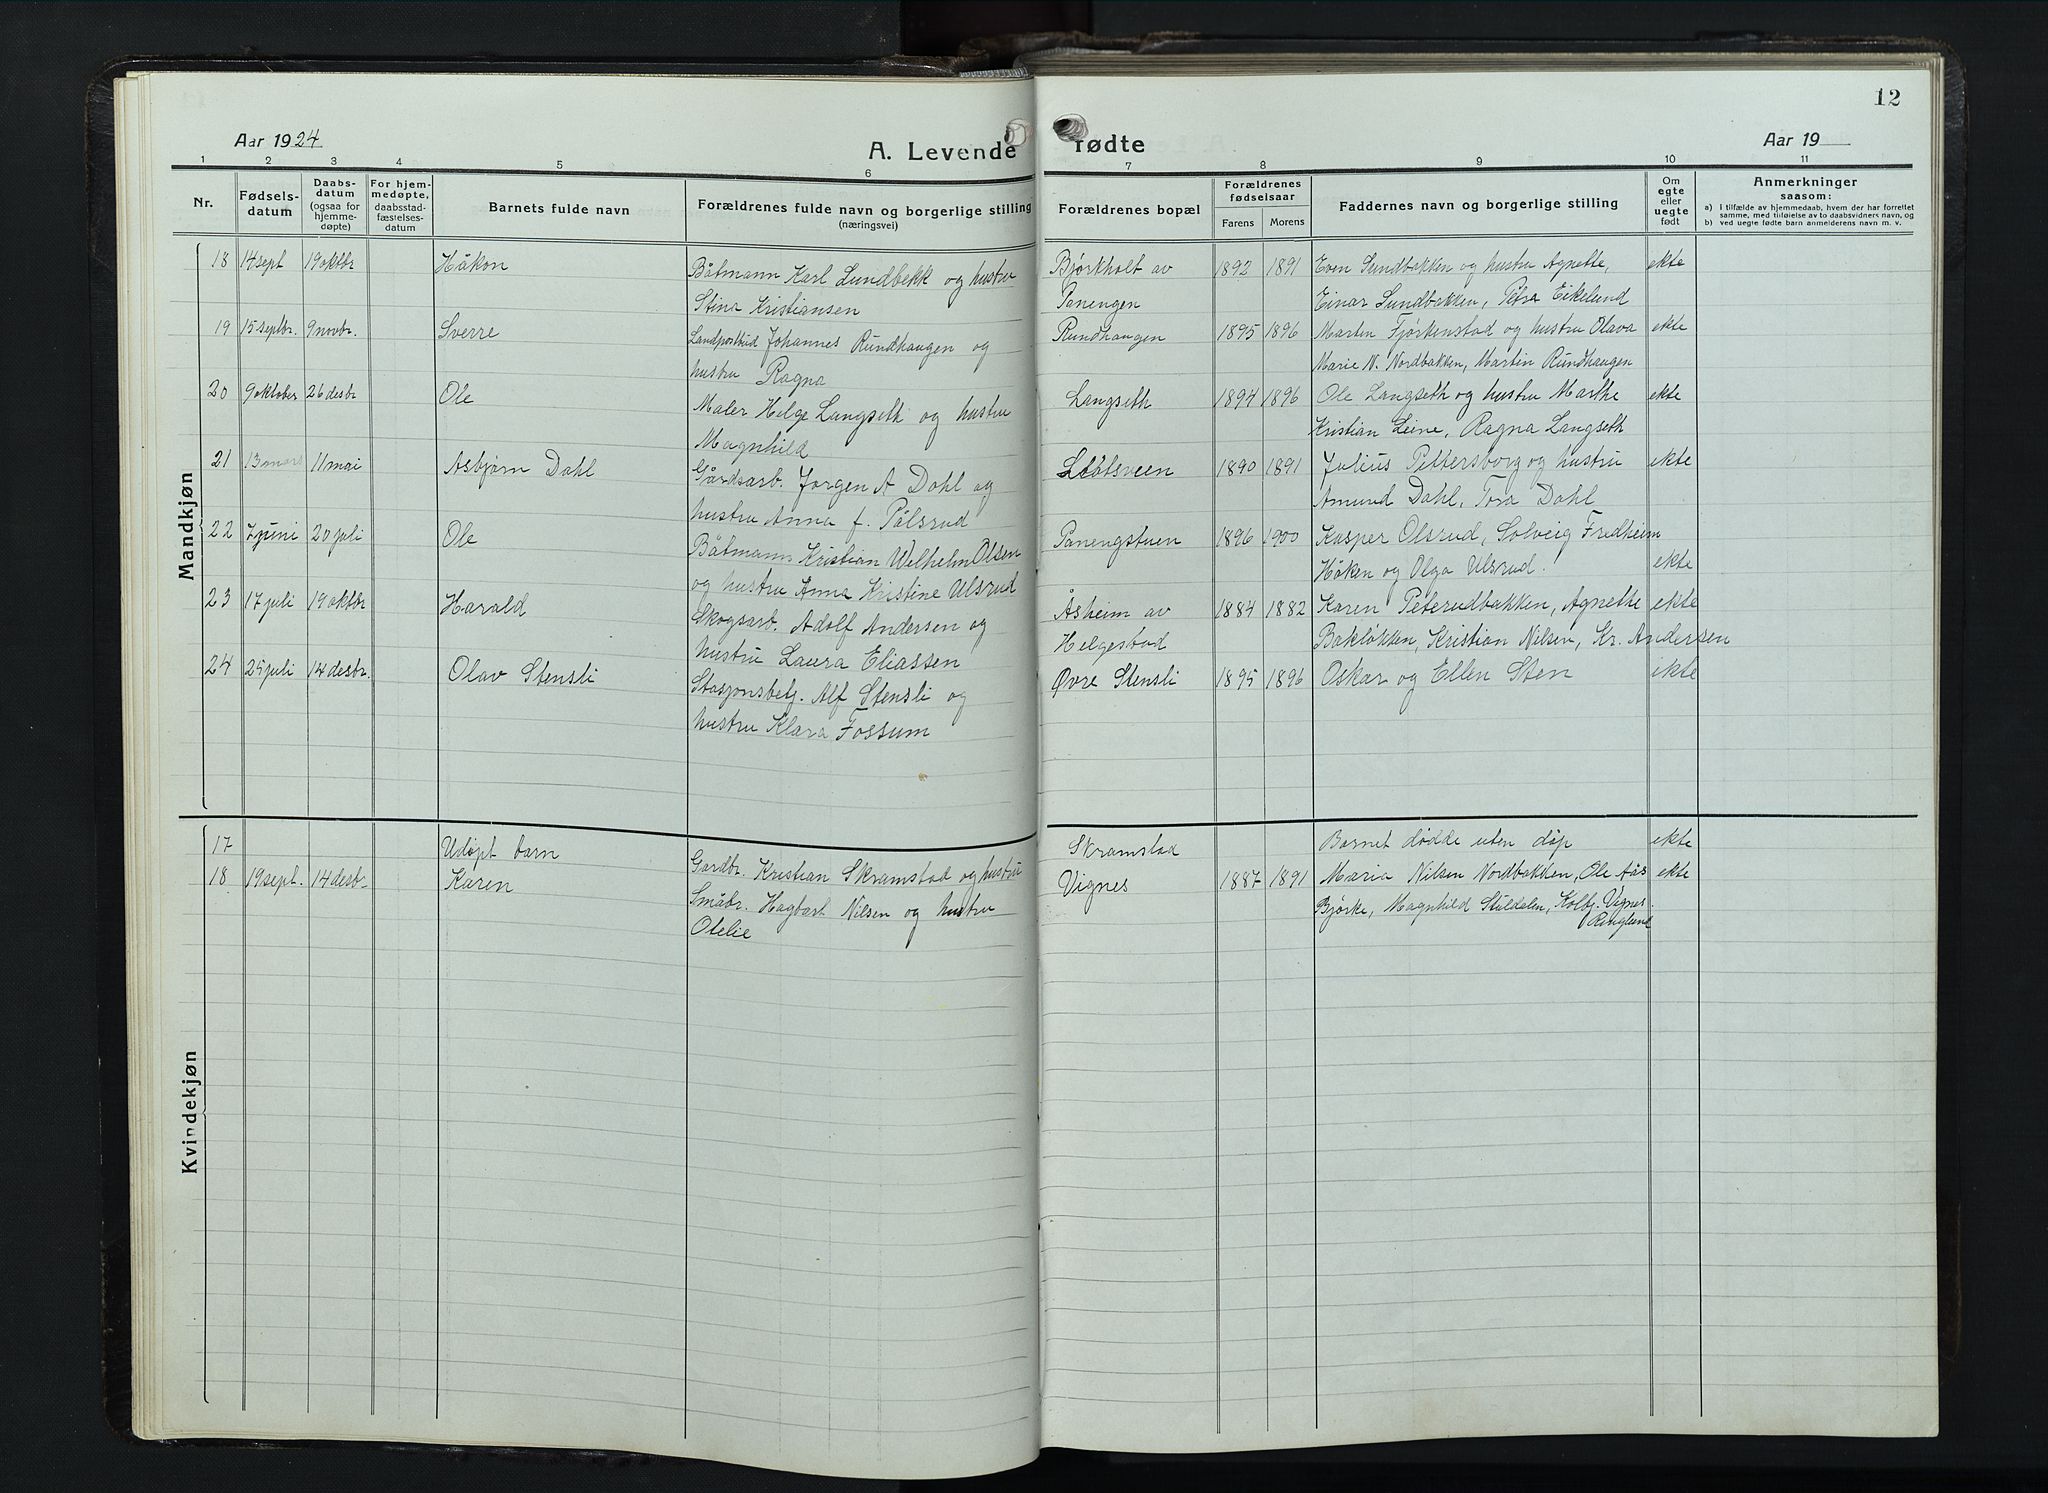 12
Aar 1924
A. Levende fødte
Aar 19
1 2 3 4 5 6 7 8 9 10 11
Nr.
Fødsels-
datum
Daabs-
datum
(ogsaa for
hjemme-
døpte)
For hjem-
medøpte,
daabsstad-
fæstelses-
datum
Barnets fulde navn
Forældrenes fulde navn og borgerlige stilling
(næringsvei)
Forældrenes bopæl
Forældrenes
fødselsaar
Farens Morens
Faddernes navn og borgerlige stilling
Om
egte
eller
uegte
født
Anmerkninger
saasom:
a) I tilfælde av hjemmedaab, hvem der har forrettet
samme, med tilføielse av to daabsvidners navn, og
b) ved uegte fødte barn anmelderens navn m. v.
Mandkjøn
18 14 sept 19 oktbr Håkon Båtmann Karl Lundbekk og hustru Bjørkholt av 1892 1891 Even Sundbakken og hustru Agnette, ekte
Stina Kristiansen Panengen Einar Sundbakken, Petra Eikelund
19 15 septbr. 9 novbr. Sverre Landpostbud Johannes Rundhaugen og Rundhaugen 1895 1896 Marten Fjørkenstad og hustru Olava ekte
hustru Ragna Marie N. Nordbakken, Martin Rundhaugen
20 9 oktober 26 desbr Ole Maler Helge Langseth og hustru Langseth 1894 1896 Ole Langseth og hustru Marthe ekte
Magnhild Kristian Leine, Ragna Langseth
21 13 mars 11 mai Asbjørn Dahl Gårdsarb. Jørgen A Dahl og 1890 1891 Julius Pettersborg og hustru ekte
hustru Anna f. Pålsrud Amund Dahl, Tora Dahl
22 7 juni 20 juli Ole Båtmann Kristian Wilhelm Olsen Panengstuen 1896 1900 Kasper Olsrud, Solveig Fredheim
og hustru Anna Kristine Ulsrud Håken og Olga Ulsrud. ekte
23 17 juli 19 oktbr Harald Skogsarb. Adolf Andersen og Åsheim av 1884 1882 Karen Peterudbakken, Agnette ekte
hustru Laura Eliassen Helgestad Bakløkken, Kristian Nilsen, Kr. Andersen
24 25 juli 14 desbr. Olav Stensli Stasjonsbetj. Alf Stensli og Øvre Stensli 1895 1896 Oskar og Ellen Sten ekte
hustru Klara Fossum
Kvindekjøn
17 Udøpt barn Gardbr. Kristian Skramstad og hustru Skramstad Barnet dødde uten døp ekte
18 19 sept. 14 desbr. Karen Småbr. Hagbart Nilsen og hustru Vignes 1887 1891 Maria Nilsen Nordbakken, Ole Aås ekte
Otelie Bjørke, Magnhild Stuldalen, Kolbj. Vignes.
Ringlund